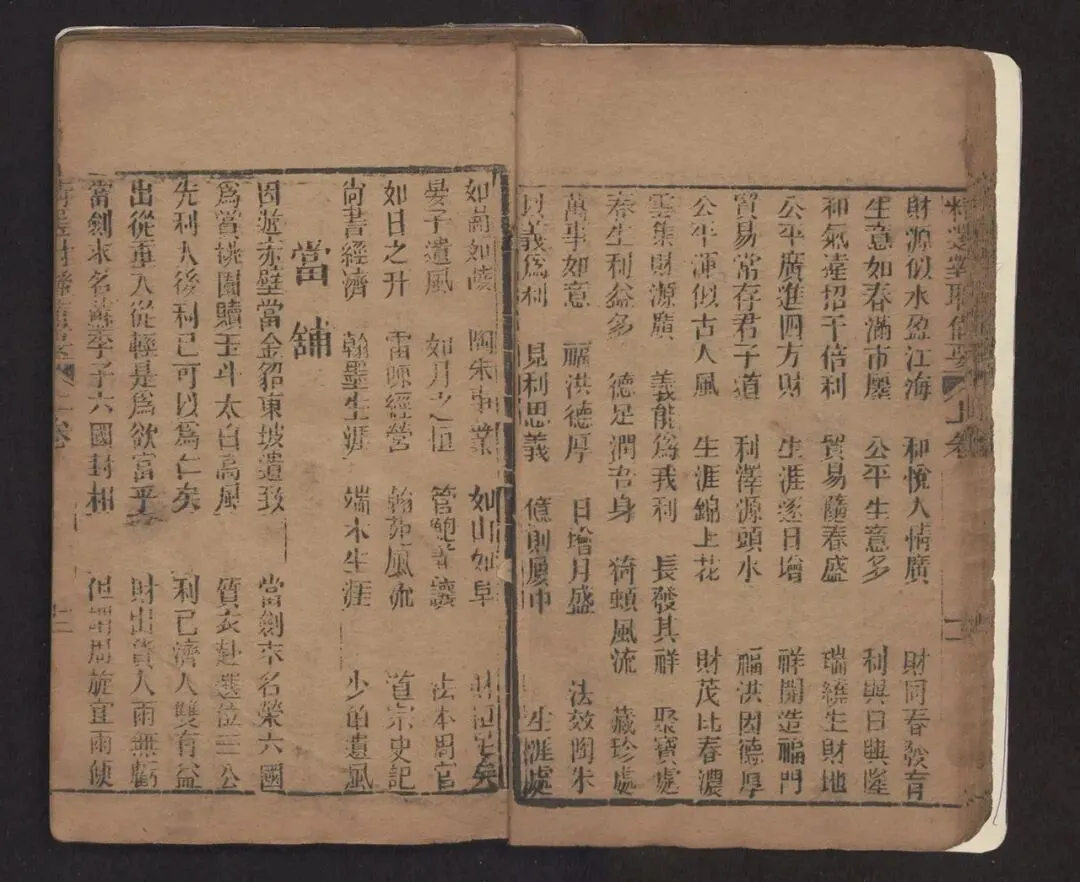 精選對聯備要 上卷 十一
財源似水盈江海 和悅人情廣 財同春發育
生意如春滿市廛 公平生意多 利與日興隆
和氣遠招千倍利 貿易隨春盛 瑞繞生財地
公平廣進四方財 生涯逐日增 祥開造福門
貿易常存君子道 利澤源頭水 福洪因德厚
公平渾似古人風 生涯錦上花 財茂比春濃
雲集財源廣 義能為我利 長發其祥 聚寶處
春生利益多 德足潤吾身 猗頓風流 藏珍處
萬事如意 福洪德厚 日增月盛 法效陶朱
以義為利 見利思義 億則屢中 生涯處
如崗如陵 陶朱事業 如山如阜
晏子遺風 如月之恒 管鮑 法本用官
如日之升 雷陳經營 翰苑風流 道宗史記
尚書經濟 翰墨生涯 端木生涯 少伯遺風
當舖
因遊赤壁當金貂東坡遺致 當劍末名榮六國
為當桃園贖玉斗太白高風 質衣赴選位三公
先利人後利己可以為仁矣 利己濟人雙有益
出從重入從輕是為欲富乎 財出貨入兩無虧
當劍末名蘇季子六國封相 但謂周旋宜兩便